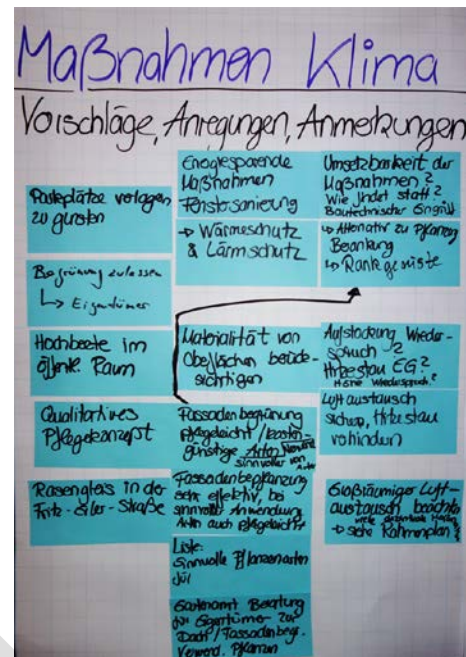 Maßnahmen Klima
Vorschläge, Anregungen, Anmerkungen
Parkplätze verlagern
zu gunsten
Begrünung zulassen
↳ Eigentümer
Hochbeete im
öffentl. Raum
Qualitatives
Pflegekonzept
Rasengleis in der
Fritz-Erler-Straße
Energiesparende
Maßnahmen
Fenstersanierung
→ Wärmeschutz
& Lärmschutz
Materialität von
Oberflächen berück-
sichtigen
Fassadenbegrünung
pflegeleicht / kosten-
günstige Arten
sinnvoller von
Fassadenbegrünung
sehr effektiv, bei
sinnvoller Anwendung
Arten auch pflegeleicht
Liste:
sinnvolle Pflanzenarten
für
Gartenamt Beratung
für Eigentümer zur
Dach/Fassadenbegr.
Verwend. Pflanzen
Umsetzbarkeit der
Maßnahmen?
Wie findet statt?
Bautechnischer Eingriff
↳ Alternativ zu Pflanzen
Berankung
↳ Rankgerüste
Aufstockung Wieder-
spruch?
Hitzestau EG?
Höhe Wiederspruch?
Luftaustausch
sichern, Hitzestau
verhindern
Großräumiger Luft-
austausch beachten
→ siehe Rahmenplan